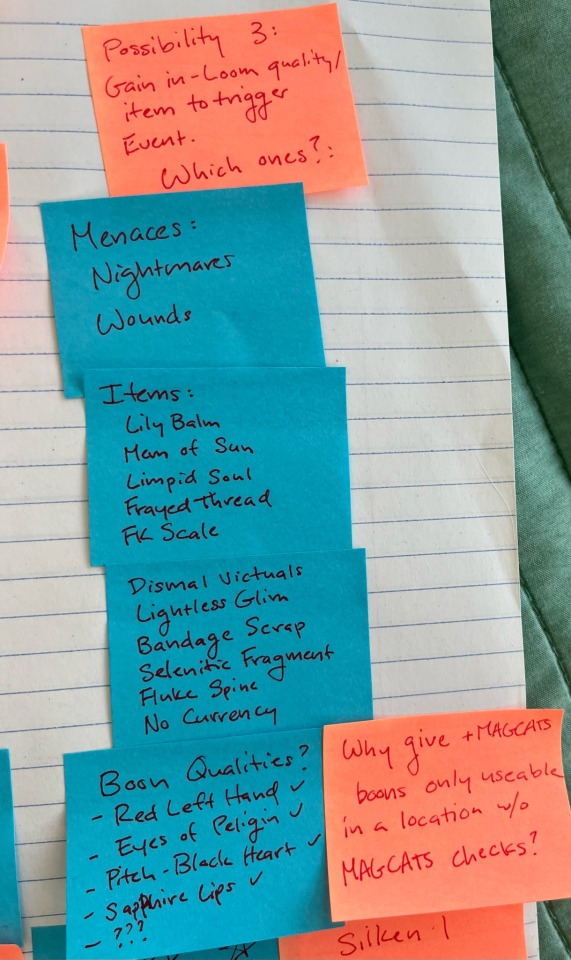 Possibility 3:
Gain in-Loom quality/
item to trigger
Event.
Which ones?:
Menaces:
Nightmares
Wounds
Items:
Lily Balm
Mem of Sun
Limpid Soul
Frayed Thread
FK Scale
Dismal Victuals
Lightless Glim
Bandage Scrap
Selenitic Fragment
Fluke Spine
No Currency
Boon Qualities?
- Red Left Hand ✓
- Eyes of Peligin ✓
- Pitch-Black Heart ✓
- Sapphire Lips ✓
- ???
Why give +MAGCATS
boons only useable
in a location w/o
MAGCATS checks?
Silken